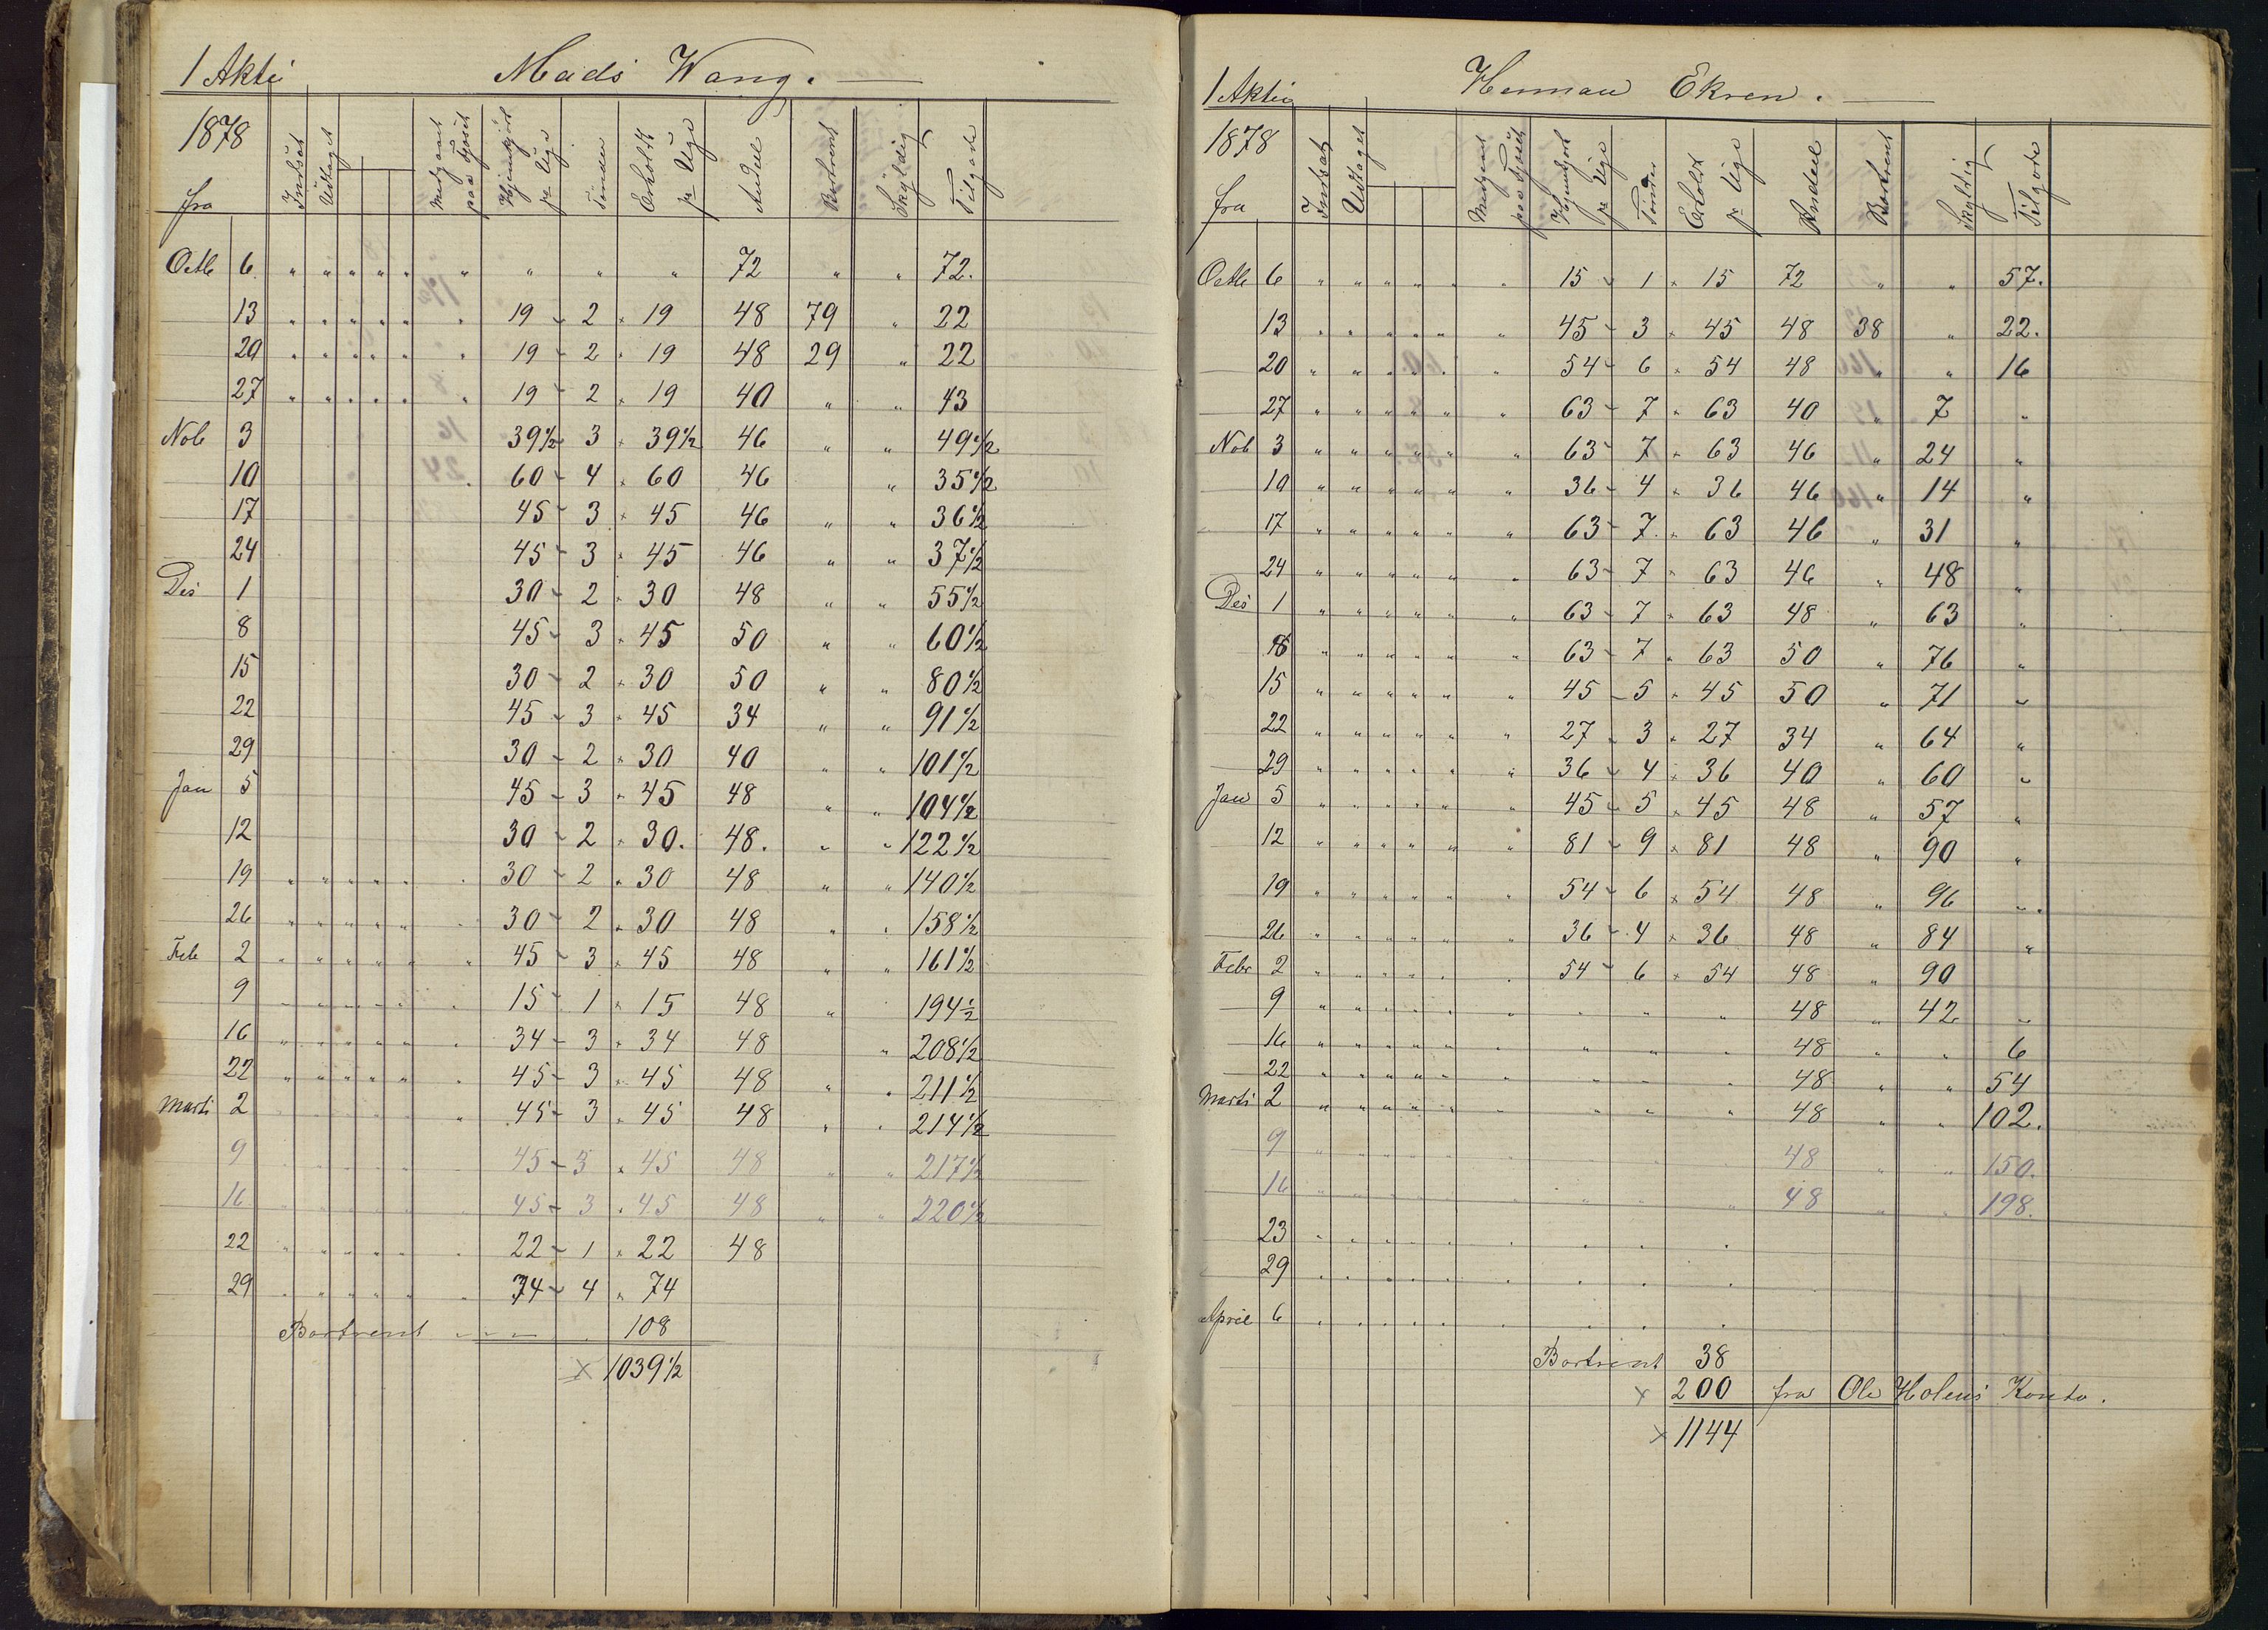 1 Aktie Mads Wang.
1878
fra Indsat Udtaget Medgaaet paa Fjöset Hjemkjört pr Uge Tönder Erholdt pr Uge Andeel Bortrent Skyldig Tilgode
Octb 6 " " " " " " " " " 72 " " 72.
13 " " " " " " 19 - 2 × 19 48 79 " 22
20 " " " " " " 19 - 2 × 19 48 29 " 22
27 " " " " " " 19 - 2 × 19 40 " " 43
Nob 3 39½ 3 × 39½ 46 " " 49½
10 60 - 4 × 60 46 " 35½
17 45 - 3 × 45 46 " " 36½
24 45 - 3 × 45 46 " " 37½
Des 1 30 - 2 × 30 48 " " 55½
8 45 - 3 × 45 50 " " 60½
15 30 - 2 × 30 50 " " 80½
22 45 - 3 × 45 34 " " 91½
29 30 - 2 × 30 40 " " 101½
Jan 5 45 - 3 × 45 48 " " 104½
12 30 - 2 × 30. 48. " " 122½
19 " " " " " " 30 - 2 × 30 48 " " 140½
26 " " " " " " 30 - 2 × 30 48 " " 158½
Feb 2 " " " " " " 45 - 3 × 45 48 " " 161½
9 " " " " " " 15 - 1 × 15 48 " 194½
16 " " " " " " 34 - 3 × 34 48 " 208½
22 " " " " " " 45 - 3 × 45 48 " " 211½
Marts 2 " " " " " " 45 - 3 × 45 48 " " 214½
9 " " " " " " 45 - 3 × 45 48 " " 217½
16 " " " " " " 45 - 3 × 45 48 " " 220½
22 " " " " " " 22 - 1 × 22 48
29 " " " " " " 74 - 4 × 74
Bortrent - - - 108
× 1039½
1 Aktie Herman Ekren.
1878
fra Indsat Udtaget Medgaaet paa Fjöset Hjemkjört pr Uge Tönder Erholdt pr Uge Andeel Bortrent Skyldig Tilgode
Octb 6 " " " " " " 15 - 1 × 15 72 " " 57.
13 " " " " " " 45 - 3 × 45 48 38 " 22.
20 " " " " " " 54 - 6 × 54 48 " " 16
27 " " " " " " 63 - 7 × 63 40 " 7 "
Nob 3 " " " " " " 63 - 7 × 63 46 " 24 "
10 " " " " " " 36 - 4 × 36 46 " 14 "
17 " " " " " " 63 - 7 × 63 46 " 31 "
24 " " " " " " 63 - 7 × 63 46 " 48 "
Des 1 " " " " " " 63 - 7 × 63 48 " 63 "
8 " " " " " " 63 - 7 × 63 50 " 76 "
15 " " " " " " 45 - 5 × 45 50 " 71 "
22 " " " " " " 27 - 3 × 27 34 " 64 "
29 " " " " " " 36 - 4 × 36 40 " 60 "
Jan 5 " " " " " " 45 - 5 × 45 48 " 57 "
12 " " " " " " 81 - 9 × 81 48 " 90 "
19 " " " " " " 54 - 6 × 54 48 " 96 "
26 " " " " " " 36 - 4 × 36 48 " 84 "
Febr 2 " " " " " " 54 - 6 × 54 48 " 90
9 " " " " " " " " " 48 " 42 "
16 " " " " " " " " " 48 " " 6
22 " " " " " " " " " 48 " " 54
Marts 2 " " " " " " " " " 48 " " 102.
9 " " " " " " " " " 48 " " 150.
16 " " " " " " " " " 48 " " 198.
23 " " " " " " " " "
29 " " " " " " " " "
April 6 " " " " " " " " "
Bortrent 38
× 200 fra Ole Holens Konto.
× 1144